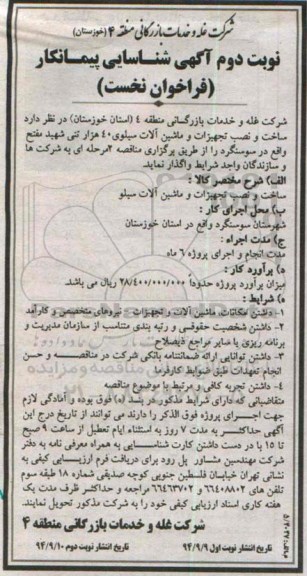 شرکت غله و خدمات بازرگانی منطقه ۴ (خوزستان)
نوبت دوم آگهی شناسایی پیمانکار
(فراخوان نخست)
شرکت غله و خدمات بازرگانی منطقه ٤ (استان خوزستان) در نظر دارد
ساخت و نصب تجهیزات و ماشین آلات سیلوی ۴۰ هزار تنی شهید مفتح
واقع در سوسنگرد را از طریق برگزاری مناقصه ۲مرحله ای به شرکت ها
و سازندگان واجد شرایط واگذار نماید.
الف) شرح مختصر کالا :
ساخت و نصب تجهیزات و ماشین آلات سیلو
ب) محل اجرای کار :
شهرستان سوسنگرد واقع در استان خوزستان
ج) مدت اجراء :
مدت انجام و اجرای پروژه ۶ ماه
د) برآورد کار :
میزان برآورد پروژه حدوداً ۲۸/۴۰۰/۰۰۰/۰۰۰ ریال می باشد.
ه) شرایط :
۱- داشتن امکانات، ماشین آلات و تجهیزات - نیروهای متخصص و کارآمد
۲- داشتن شخصیت حقوقی و رتبه بندی متناسب از سازمان مدیریت و
برنامه ریزی یا سایر مراجع ذیصلاح
۳- داشتن توانایی ارائه ضمانتنامه بانکی شرکت در مناقصه و حسن
انجام تعهدات طبق ضوابط کارفرما
۴- داشتن تجربه کافی و مرتبط با موضوع مناقصه
متقاضیانی که دارای شرایط مذکور در بند (ه) فوق بوده و آمادگی لازم
جهت اجرای پروژه فوق الذکر را دارند می توانند از تاریخ درج این
آگهی حداکثر به مدت ۷ روز به استثناء ایام تعطیل از ساعت ۹ صبح
تا ۱۵ با در دست داشتن کارت شناسایی به همراه معرفی نامه به دفتر
شرکت مهندسین مشاور پل رود برای دریافت فرم ارزیابی کیفی به
نشانی تهران خیابان فلسطین جنوبی کوچه صدیقی شماره ۱۸ طبقه سوم
تلفن های ۶۶۴۰۸۸۰۲ و ۶۶۴۶۳۷۰۲ مراجعه و حداکثر ظرف مدت یک
هفته کاری اسناد ارزیابی کیفی خود را به شرکت مذکور تحویل نمایند.
شرکت غله و خدمات بازرگانی منطقه ۴
تاریخ انتشار نوبت اول ۹۴/۹/۹ تاریخ انتشار نوبت دوم ۹۴/۹/۱۰